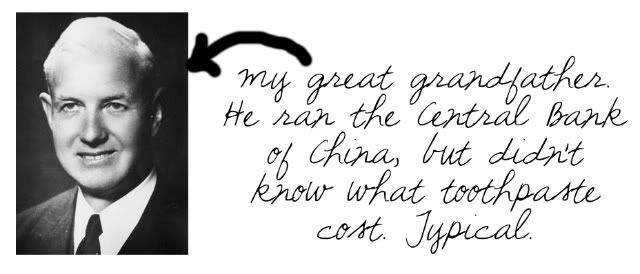 my great grandfather.
He ran the Central Bank
of China, but didn't
know what toothpaste
cost. Typical.